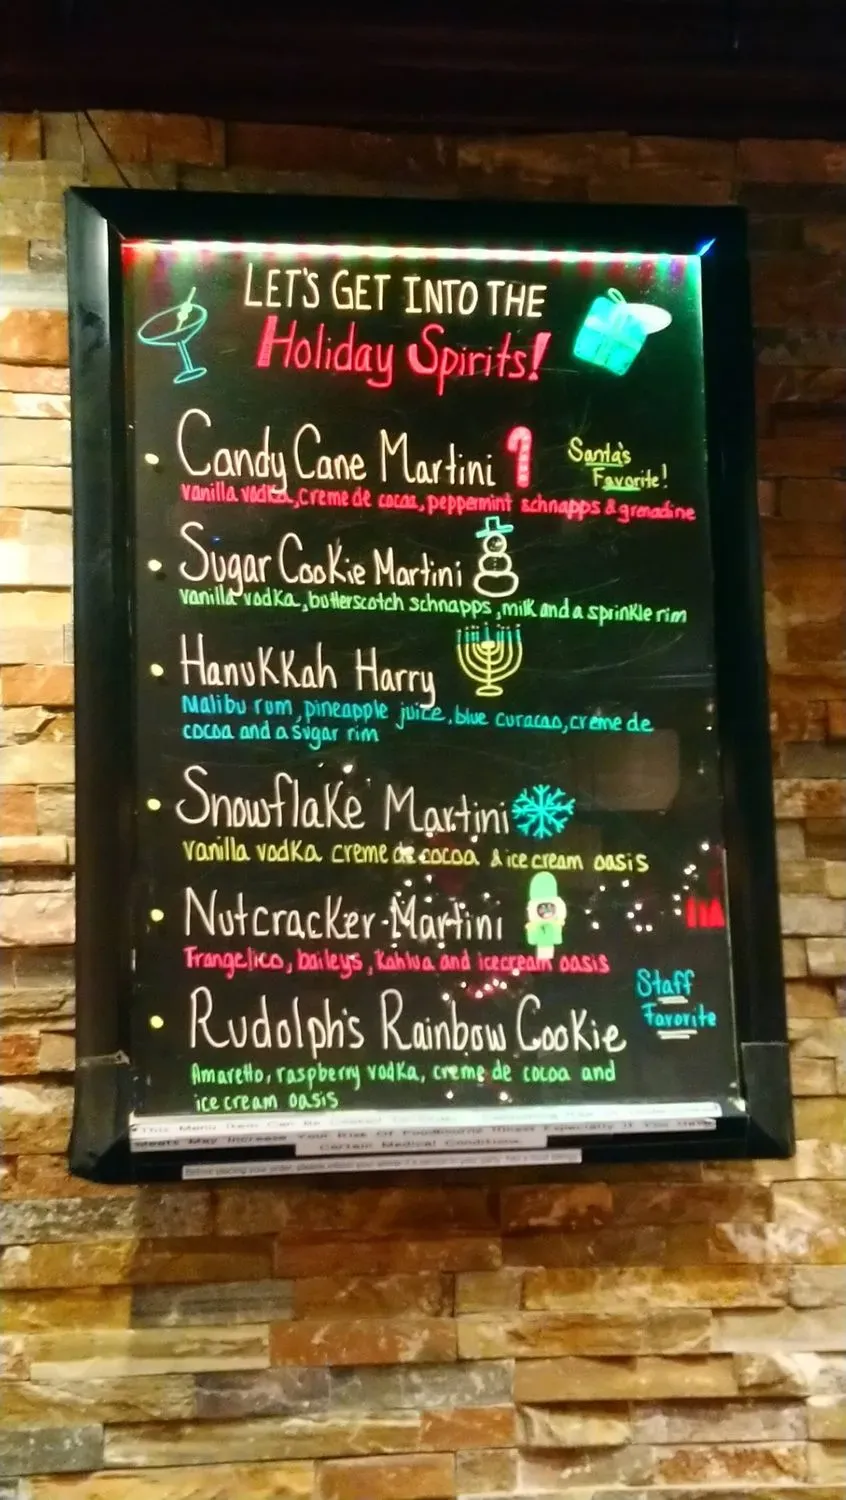 LET'S GET INTO THE
Holiday Spirits!
Candy Cane Martini
Santa's
Favorite!
vanilla vodka, creme de cocoa, peppermint schnapps & grenadine
Sugar Cookie Martini
vanilla vodka, butterscotch schnapps, milk and a sprinkle rim
Hanukkah Harry
Malibu rum, pineapple juice, blue curacao, creme de
cocoa and a sugar rim
Snowflake Martini
vanilla vodka creme de cocoa & ice cream oasis
Nutcracker Martini
Frangelico, baileys, Kahlua and icecream oasis
Staff
Favorite
Rudolph's Rainbow Cookie
Amaretto, raspberry vodka, creme de cocoa and
ice cream oasis
This Menu Item Can Be
Meats May Increase Your Risk Of Foodbourne Illness Especially If You Have
Certain Medical Conditions
Before placing your order, please inform your server if a person in your party has a food allergy